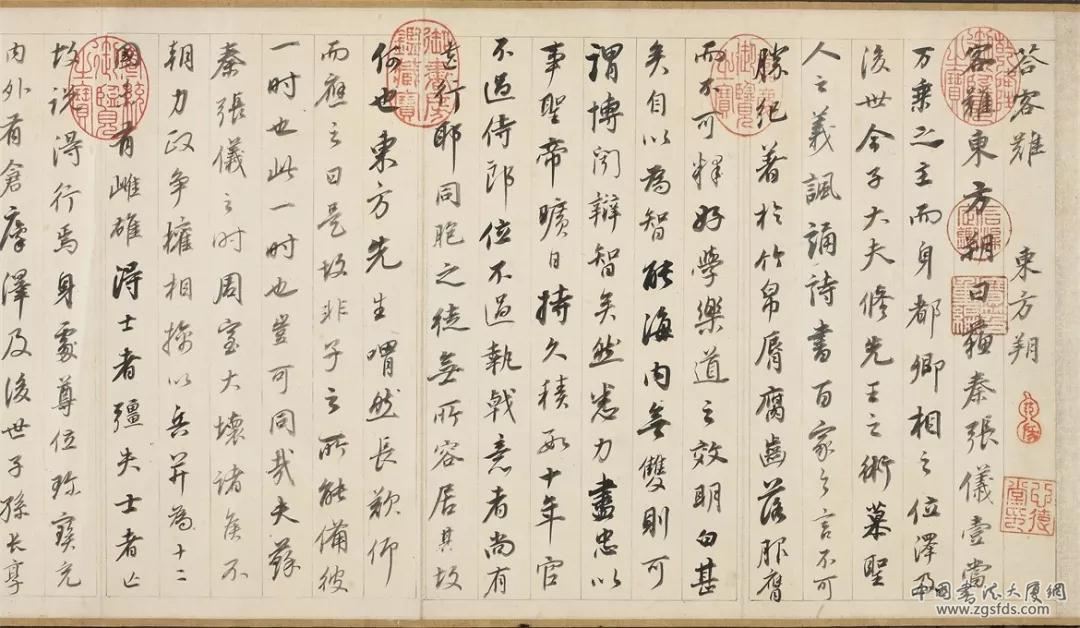 答客難 東方朔
客難東方朔曰蘇秦張儀壹當
万乘之主而身都卿相之位澤及
後世今子大夫修先王之術慕聖
人之義諷誦詩書百家之言不可
勝紀著於竹帛脣腐齒落服膺
而不可釋好學樂道之效明白甚
矣自以為智能海內無雙則可
謂博聞辯智矣然悉力盡忠以
事聖帝曠日持久積數十年官
不過侍郎位不過執戟意者尚有
遺行耶同胞之徒無所容居其故
何也東方先生喟然長歎仰
而應之曰是故非子之所能備彼
一时也此一时也豈可同哉夫蘇
秦張儀之时周室大壞諸侯不
朝力政争權相擒以兵并為十二
國未有雌雄得士者彊失士者亡
故說得行焉身處尊位珍寶充
內外有倉廩澤及後世子孫長享
中国書法大厦網
www.zgsfds.com